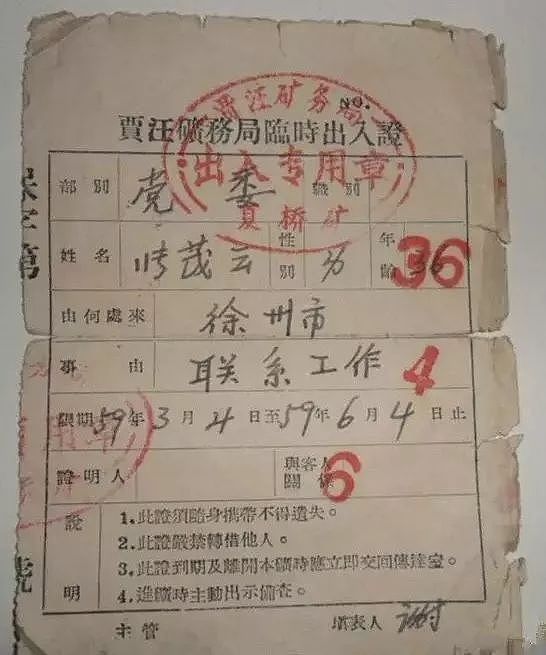 NO.
賈汪礦務局臨時出入證
贾汪矿务局
出入专用章
夏桥矿
部別 党委 職別
姓名 茂云 性別 男 年齡 36
36
由何處來 徐州市
事由 联系工作
4
限期 59年3月4日至59年6月4日止
證明人 與客人關係
6
說明
1.此證須隨身携帶不得遺失。
2.此證嚴禁轉借他人。
3.此證到期及離開本礦時應立即交回傳達室。
4.進礦時主動出示備查。
主管 填表人